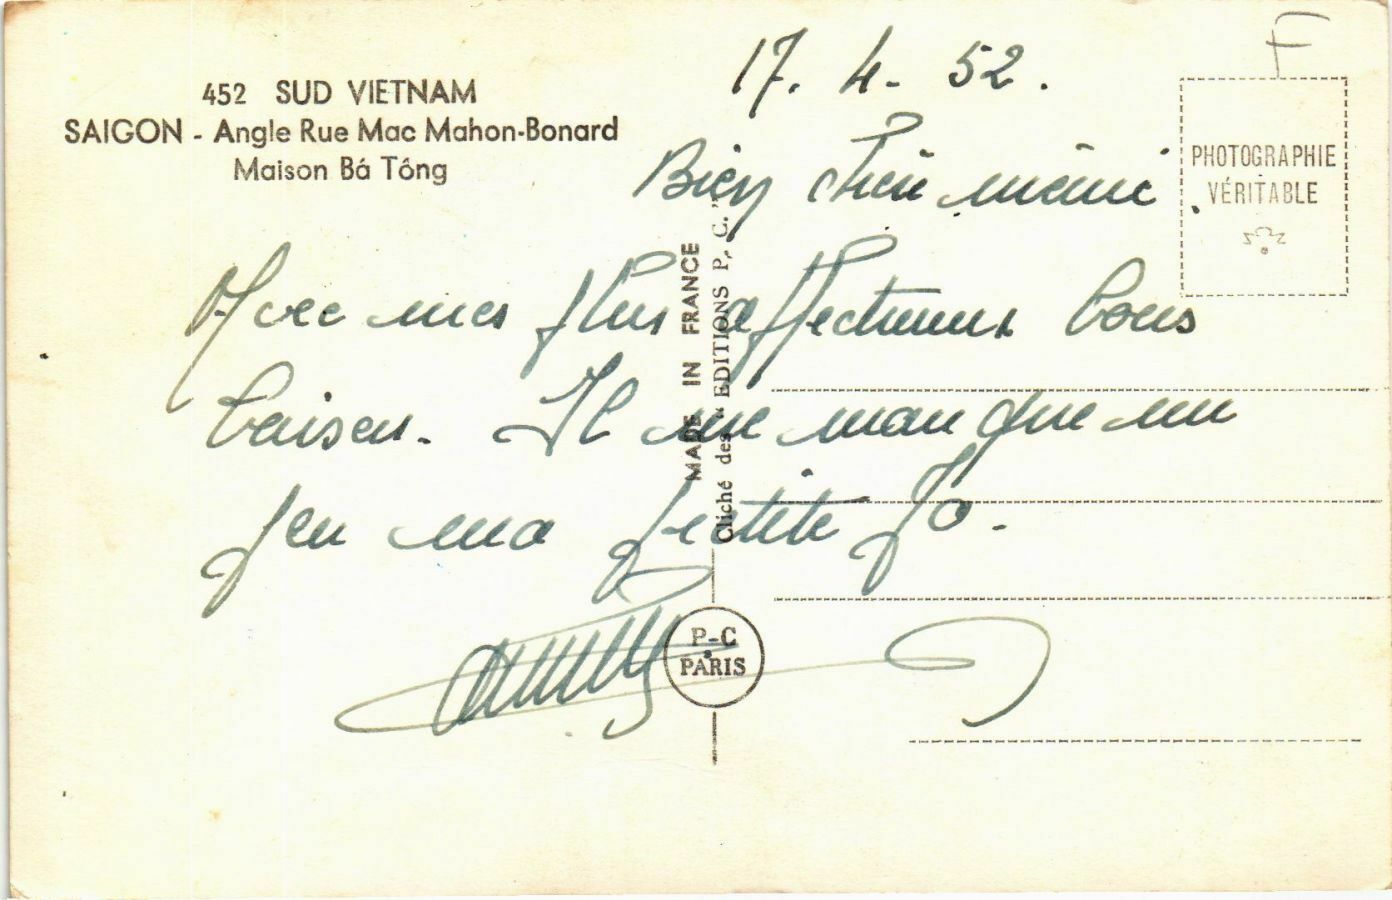 452 SUD VIETNAM
SAIGON - Angle Rue Mac Mahon-Bonard
Maison Bá Tông
17. 4. 52.
F
PHOTOGRAPHIE
VÉRITABLE
Bien chère mémé.
Avec mes plus affectueux bons
baisers. Il me manque un
peu ma petite Jo.
MADE IN FRANCE
Cliché des "EDITIONS P. C."
P-C
PARIS